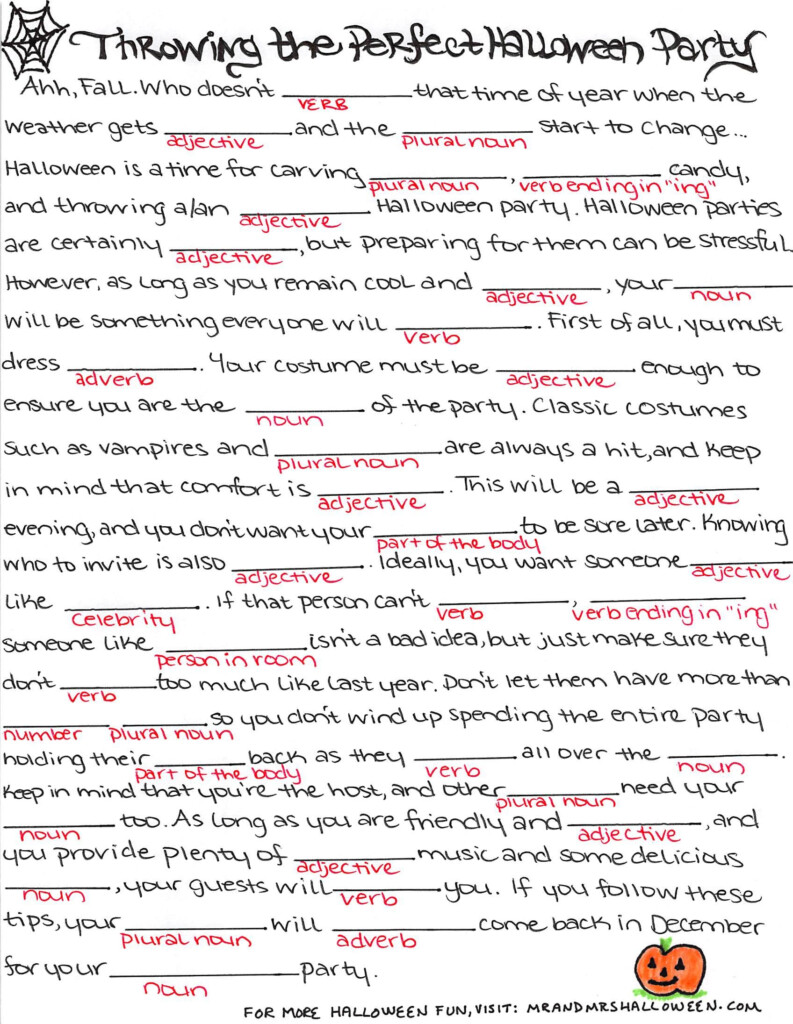 Throwing the Perfect Halloween Party
Ahh, Fall. Who doesn't ____________ that time of year when the
VERB
weather gets ____________ and the ____________ start to change...
adjective plural noun
Halloween is a time for carving ____________, ____________ candy,
plural noun verb ending in "ing"
and throwing a/an ____________ Halloween party. Halloween parties
adjective
are certainly ____________, but preparing for them can be stressful.
adjective
However, as long as you remain cool and ____________, your ____________
adjective noun
will be something everyone will ____________. First of all, you must
verb
dress ____________. Your costume must be ____________ enough to
adverb adjective
ensure you are the ____________ of the party. Classic costumes
noun
such as vampires and ____________ are always a hit, and keep
plural noun
in mind that comfort is ____________. This will be a ____________
adjective adjective
evening, and you don't want your ____________ to be sore later. Knowing
part of the body
who to invite is also ____________. Ideally, you want someone ____________
adjective adjective
like ____________. If that person can't ____________, ____________
celebrity verb verb ending in "ing"
someone like ____________ isn't a bad idea, but just make sure they
person in room
don't ____________ too much like last year. Don't let them have more than
verb
____________ ____________ so you don't wind up spending the entire party
number plural noun
holding their ____________ back as they ____________ all over the ____________.
part of the body verb noun
Keep in mind that you're the host, and other ____________ need your
plural noun
____________ too. As long as you are friendly and ____________, and
noun adjective
you provide plenty of ____________ music and some delicious
adjective
____________, your guests will ____________ you. If you follow these
noun verb
tips, your ____________ will ____________ come back in December
plural noun adverb
for your ____________ party.
noun
FOR MORE HALLOWEEN FUN, VISIT: MRANDMRSHALLOWEEN.COM